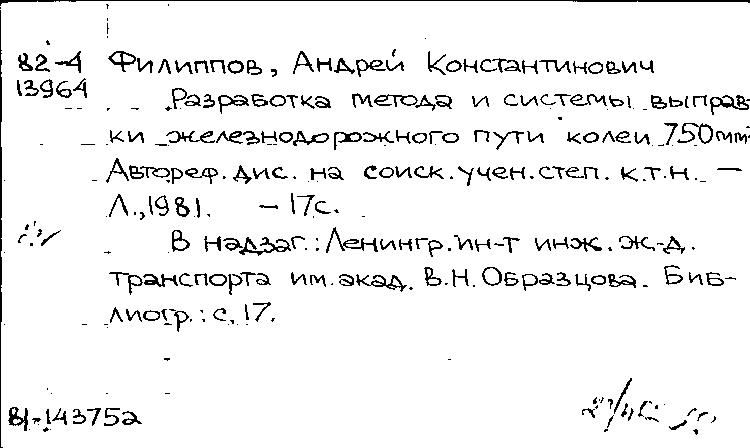 82-4 Филиппов, Андрей Константинович
13964
Разработка метода и системы выправ-
ки железнодорожного пути колеи 750мм.
Автореф. дис. на соиск. учен. степ. к.т.н. —
Л., 1981. — 17с.
В надзаг.: Ленингр. ин-т инж. ж.-д.
транспорта им. акад. В.Н. Образцова. Биб-
лиогр.: с. 17.
81-143752